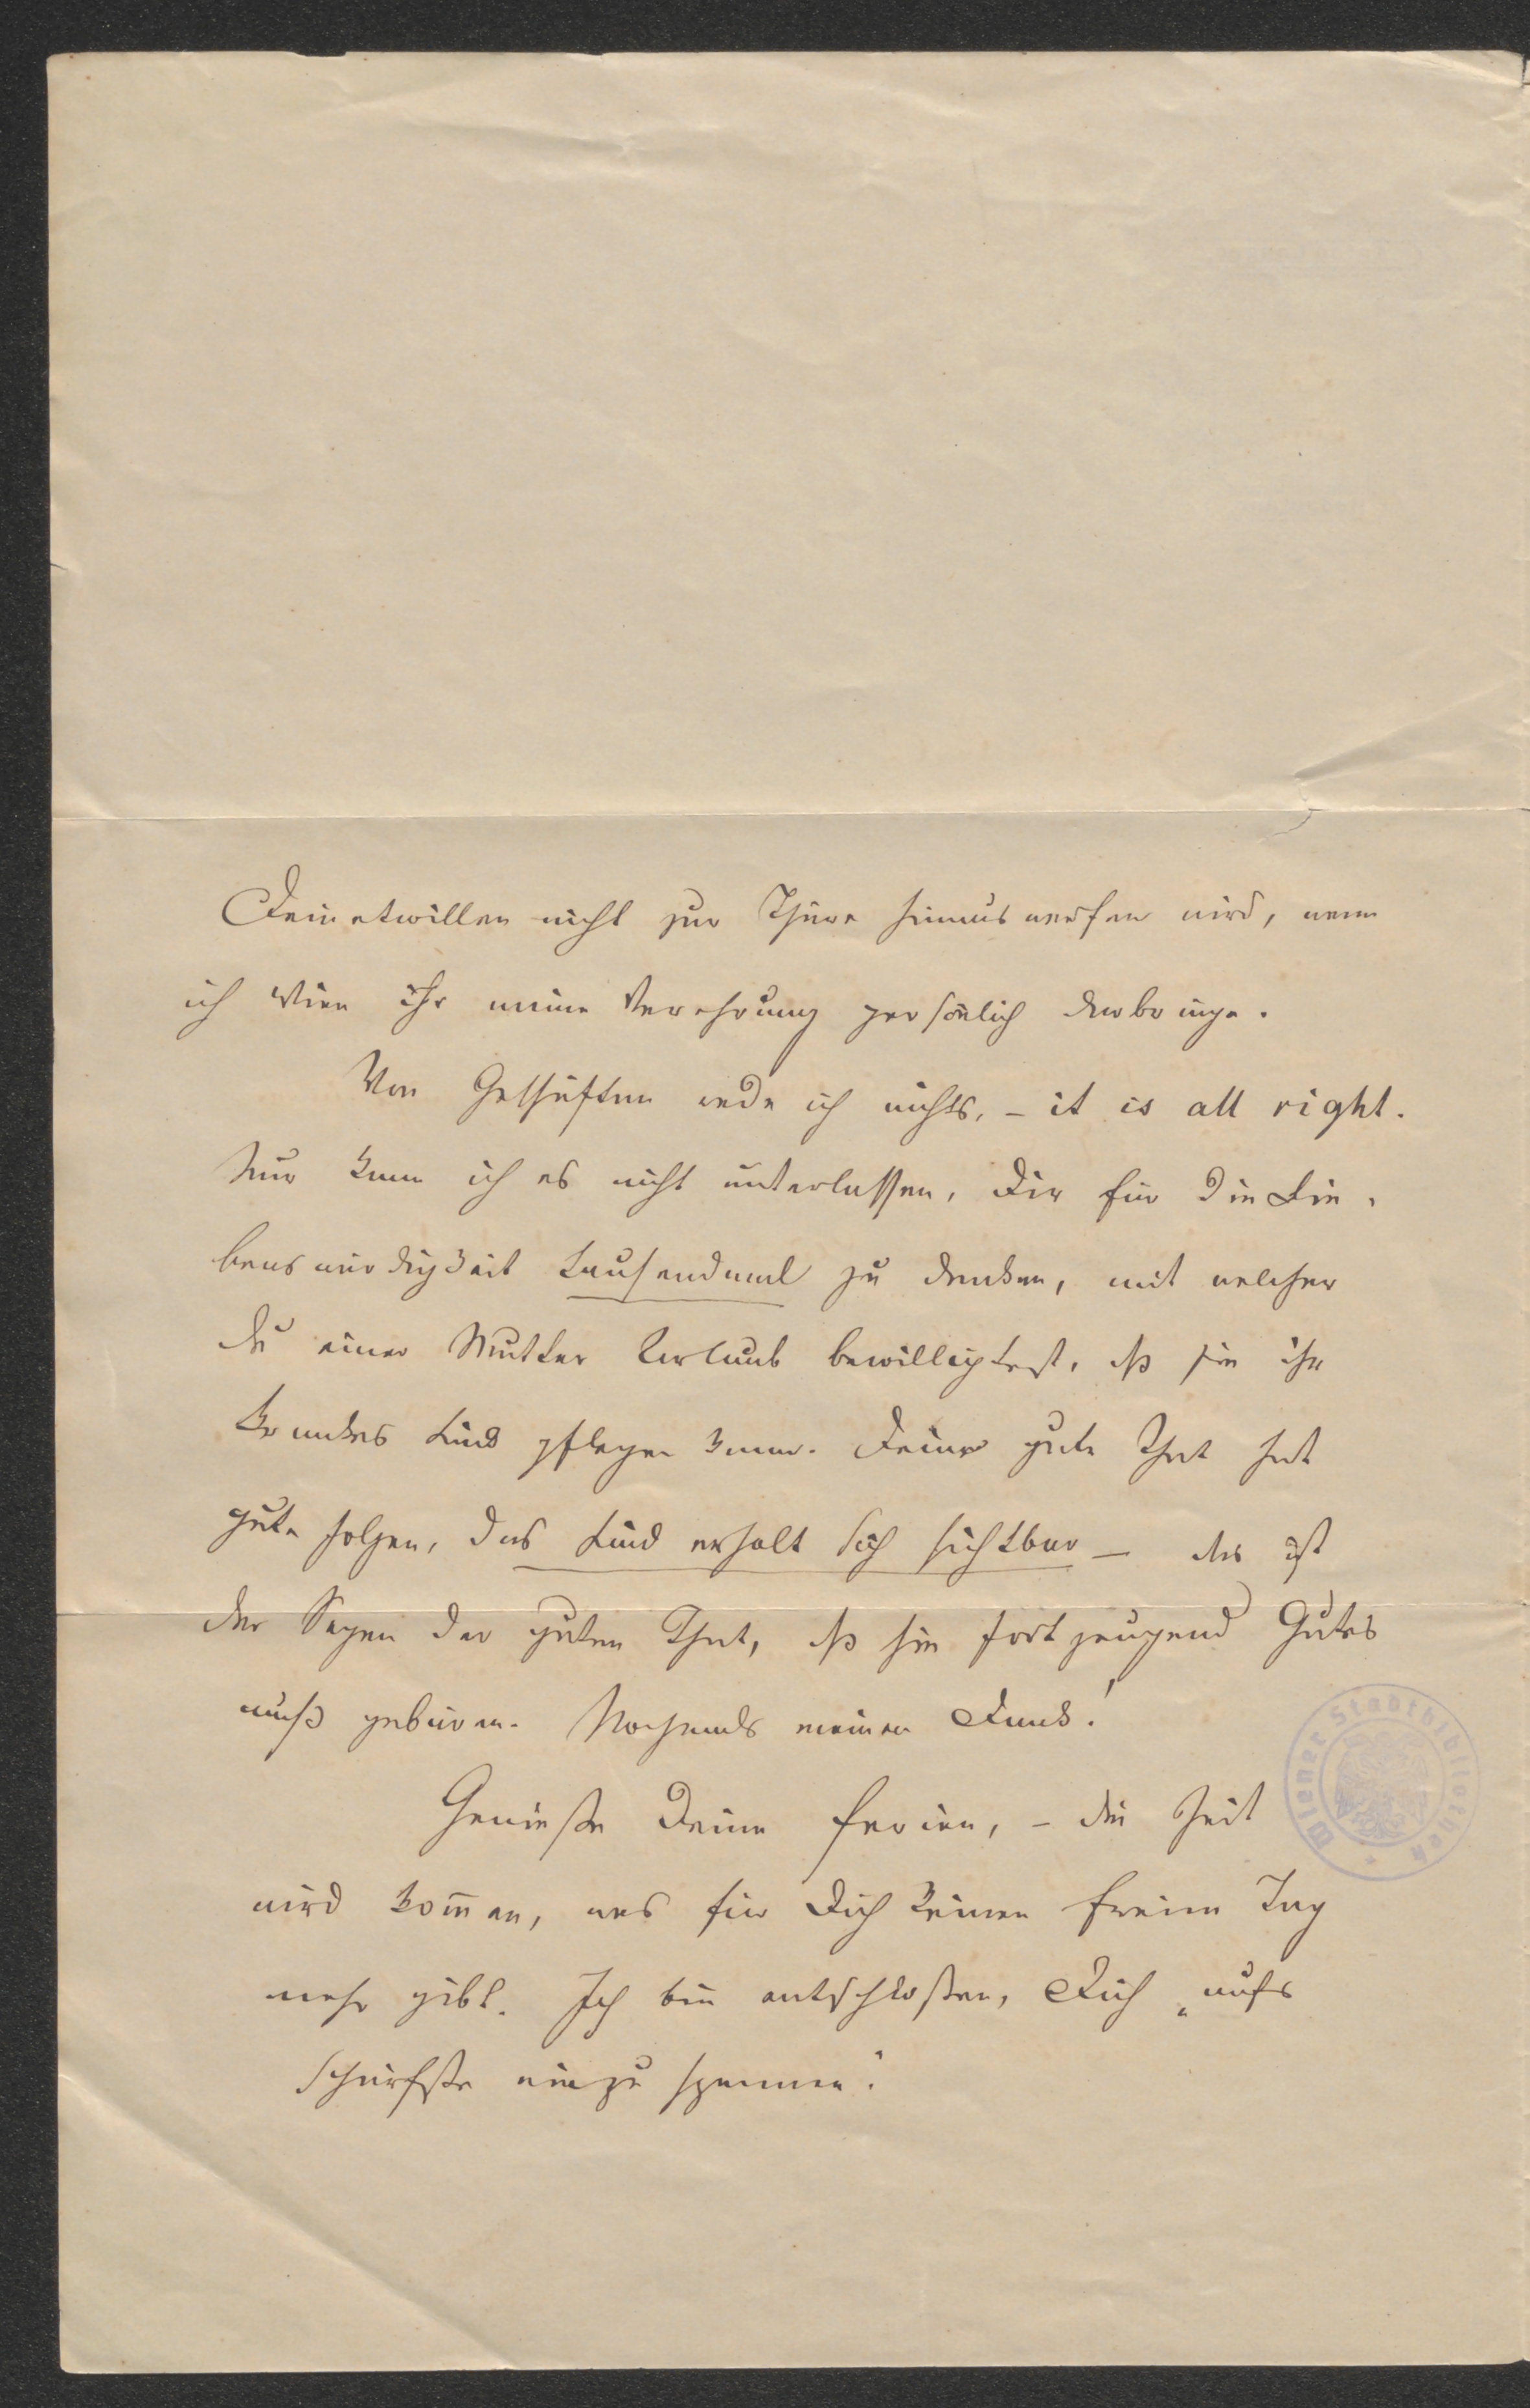 Deinetwillen nicht zur Thüre hinauswerfen wird, wenn
ich ihr meine Verehrung persönlich darbringe.
Von Geschäften rede ich nichts, – it is all right.
Nur kann ich es nicht unterlassen, Dir für die Lie-
benswürdigkeit tausendmal zu danken, mit welcher
Du einer Mutter Urlaub bewilligtest, daß sie ihr
krankes Kind pflegen kann. Deine gute That hat
gute Folgen, das Kind erholt sich sichtbar – das ist
der Segen der guten That, daß sie fortzeugend Gutes
muß gebären. Nochmals meinen Dank!
Genieße Deine Ferien, – die Zeit
wird kom̅en, wo es für Dich keinen freien Tag
mehr gibt. Ich bin entschloßen, Dich „aufs
Schärfste einzuspannen“.
Wiener Stadtbibliothek